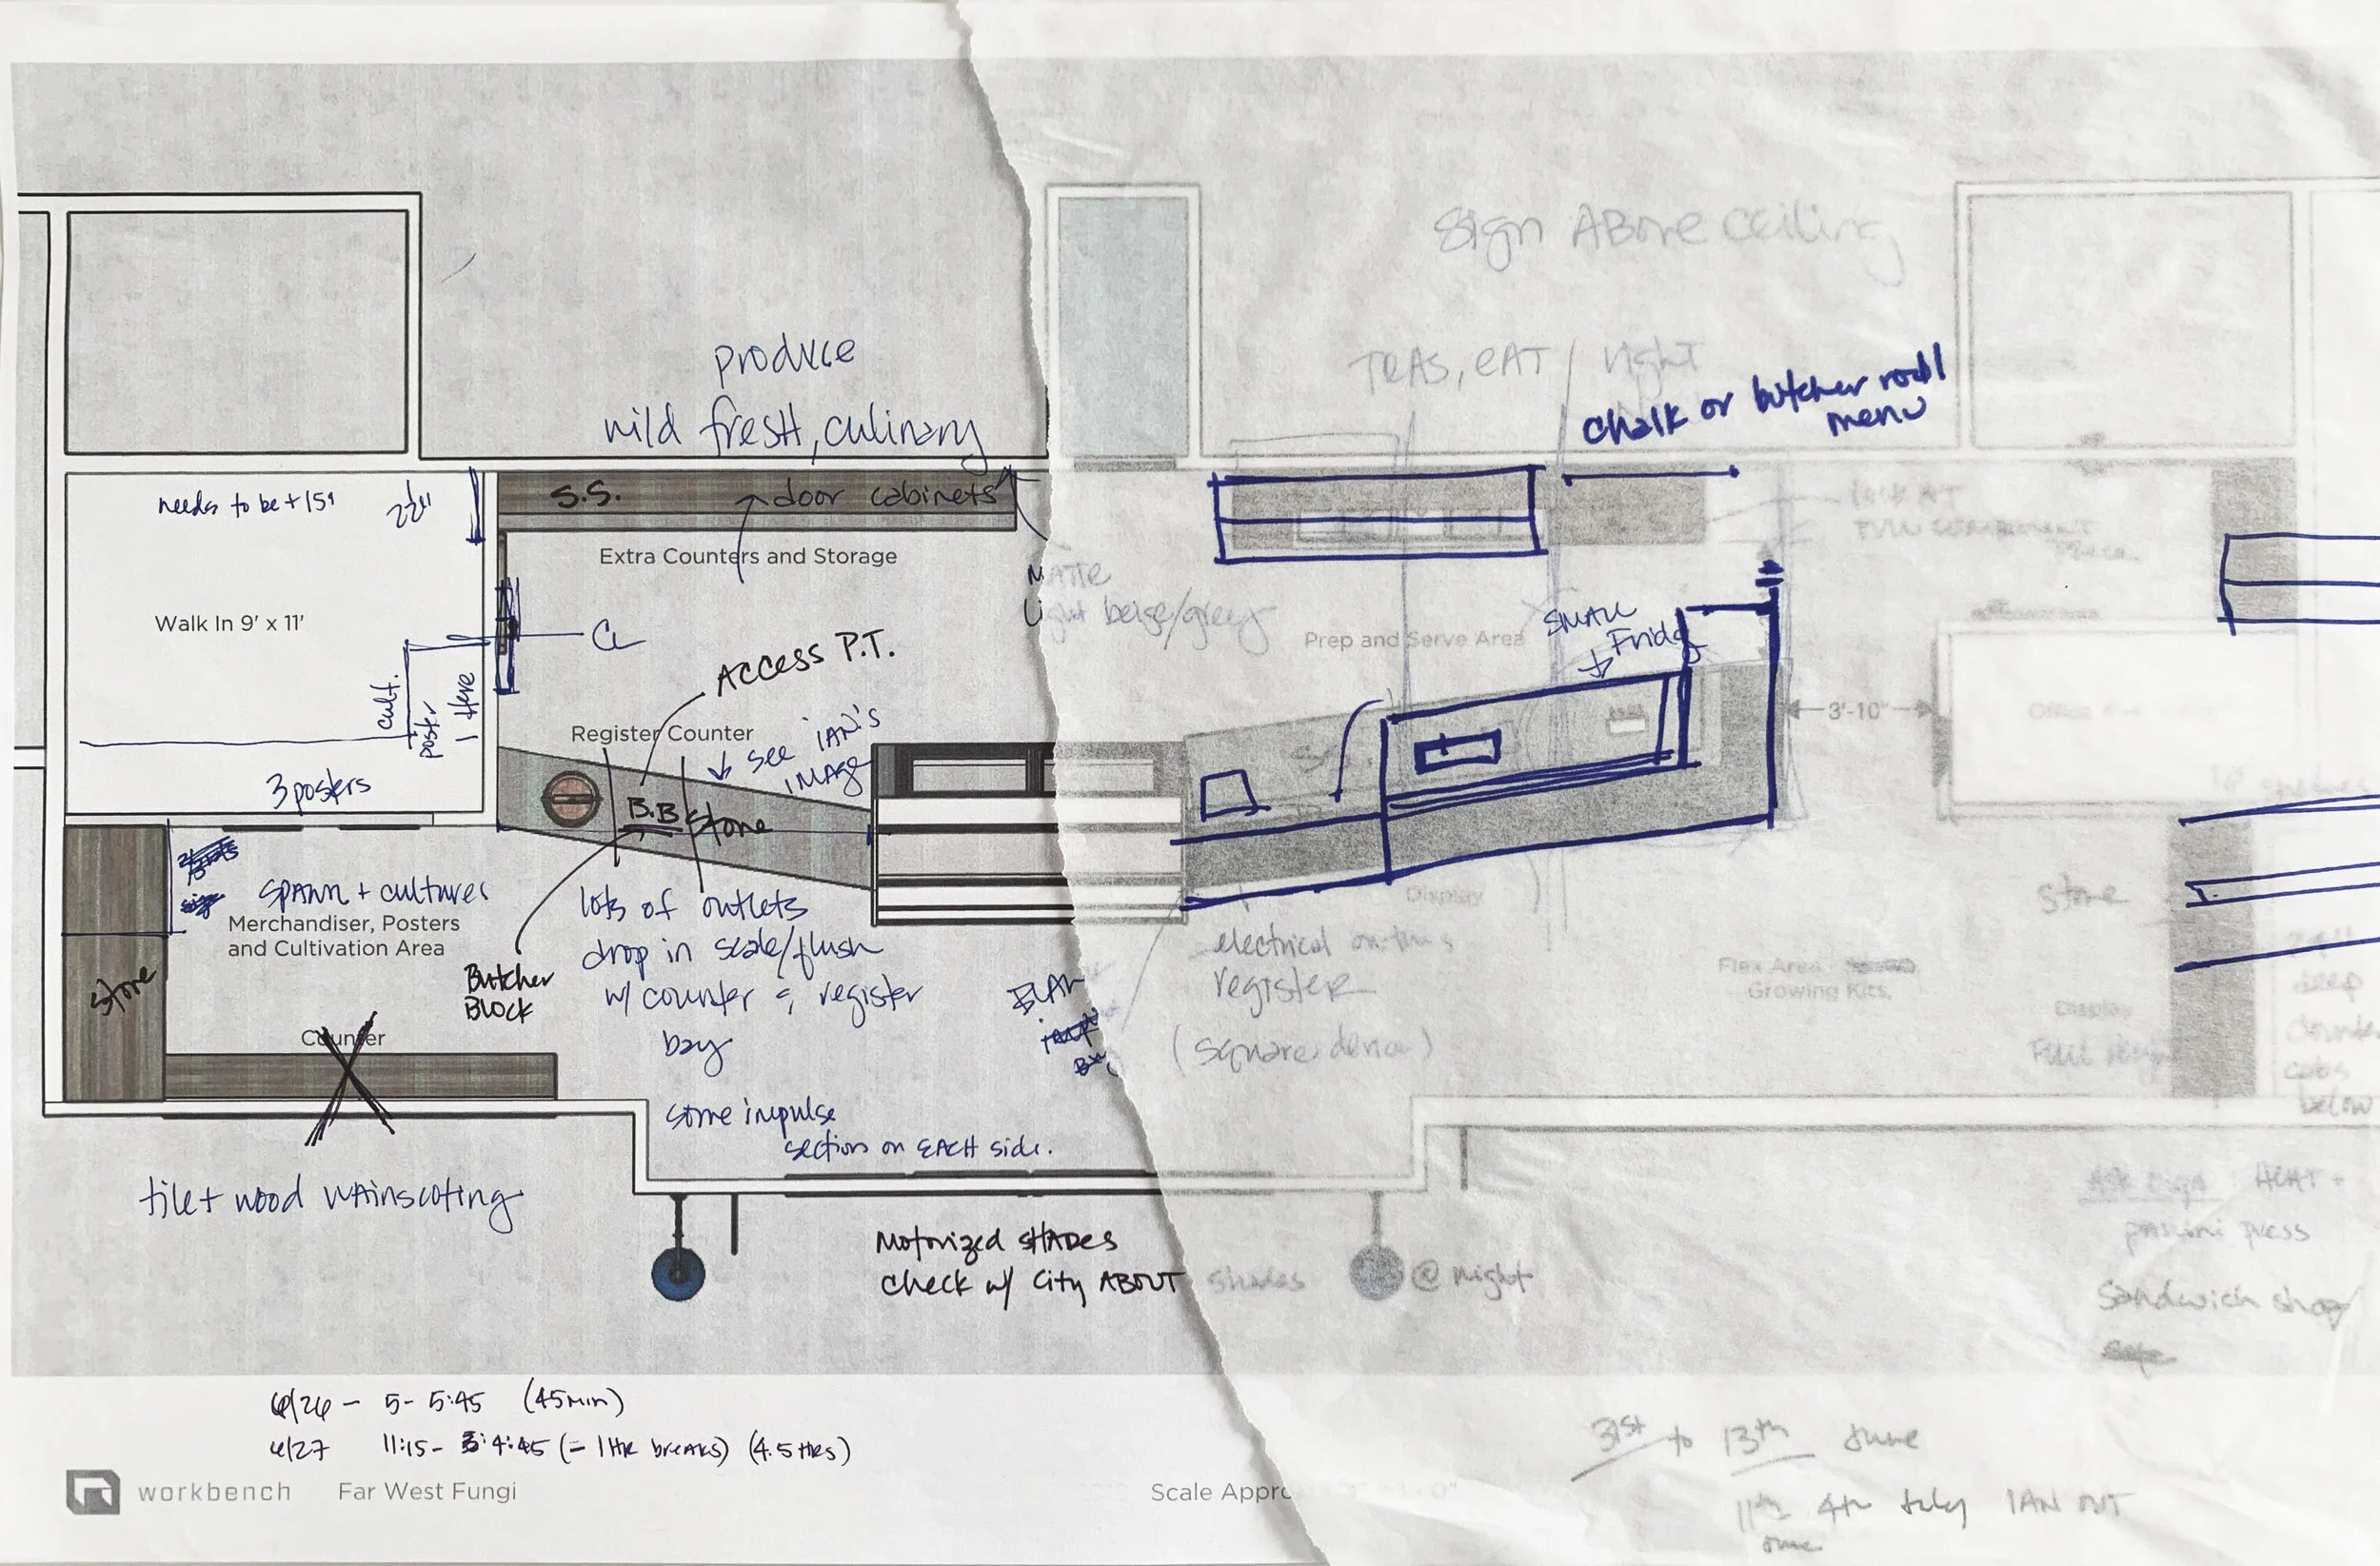 Sign Above ceiling
produce
wild fresh, culinary
eAT / right
chalk or butcher
menu
needs to be + 15"
22"
S.S.
door cabinets
Extra Counters and Storage
look AT
Walk In 9' x 11'
MATTE
Light beige/grey
Prep and Serve Area
SMALL
Fridg
CL
ACCESS P.T.
cult.
poster
Here
Register Counter
see IAN'S
IMAGE
3'-10"
3 posters
B.B
Stone
SPAWN + cultures
Merchandiser, Posters
and Cultivation Area
Display
store
lots of outlets
drop in scale/flush
w/ counter & register
bay
electrical
register
(square device)
Flex Area
Growing Kits,
Display
deep
cabs
below
Butcher
BLOCK
store
Counter
some impulse
section on EACH side.
tile + wood wainscoting
Motorized SHADES
check w/ City ABOUT shades @ night
HEAT +
panini press
Sandwich shop
4/26 - 5- 5:45 (45min)
4/27 11:15- 4:45 (- 1 HR breaks) (4.5 HRS)
31st to 13th June
11th 4th July IAN OUT
workbench Far West Fungi
Scale Appro